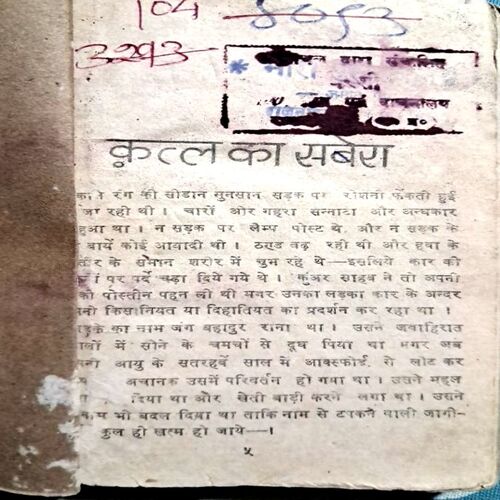 104 8053
3293
क़त्ल का सबेरा
रंग की सोडान सुनसान सड़क पर रोशनी फेंकती हुई
जा रही थी । चारों ओर गहरा सन्नाटा और अन्धकार
हुआ था । न सड़क पर लैम्प पोस्ट थे, और न सड़क के
बायें कोई आबादी थी । ठण्ड बढ़ रही थी और हवा के
तीर के समान शरीर में चुभ रहे थे—इसलिये कार की
पर पर्दे चढ़ा दिये गये थे । कुँअर साहब ने तो अपनी
पोस्तीन पहन ली थी मगर उनका लड़का कार के अन्दर
किसानियत या दिहातियत का प्रदर्शन कर रहा था ।
लड़के का नाम जंग बहादुर राना था । उसने जवाहिरात
में सोने के चमचों से दूध पिया था मगर अब
आयु के सतरहवें साल में आक्सफोर्ड से लौट कर
अचानक उसमें परिवर्तन हो गया था । उसने महल
दिया था और खेती बाड़ी करने लगा था । उसने
भी बदल दिया था ताकि नाम से टपकने वाली जागी-
कुल ही खत्म हो जाये—।
५